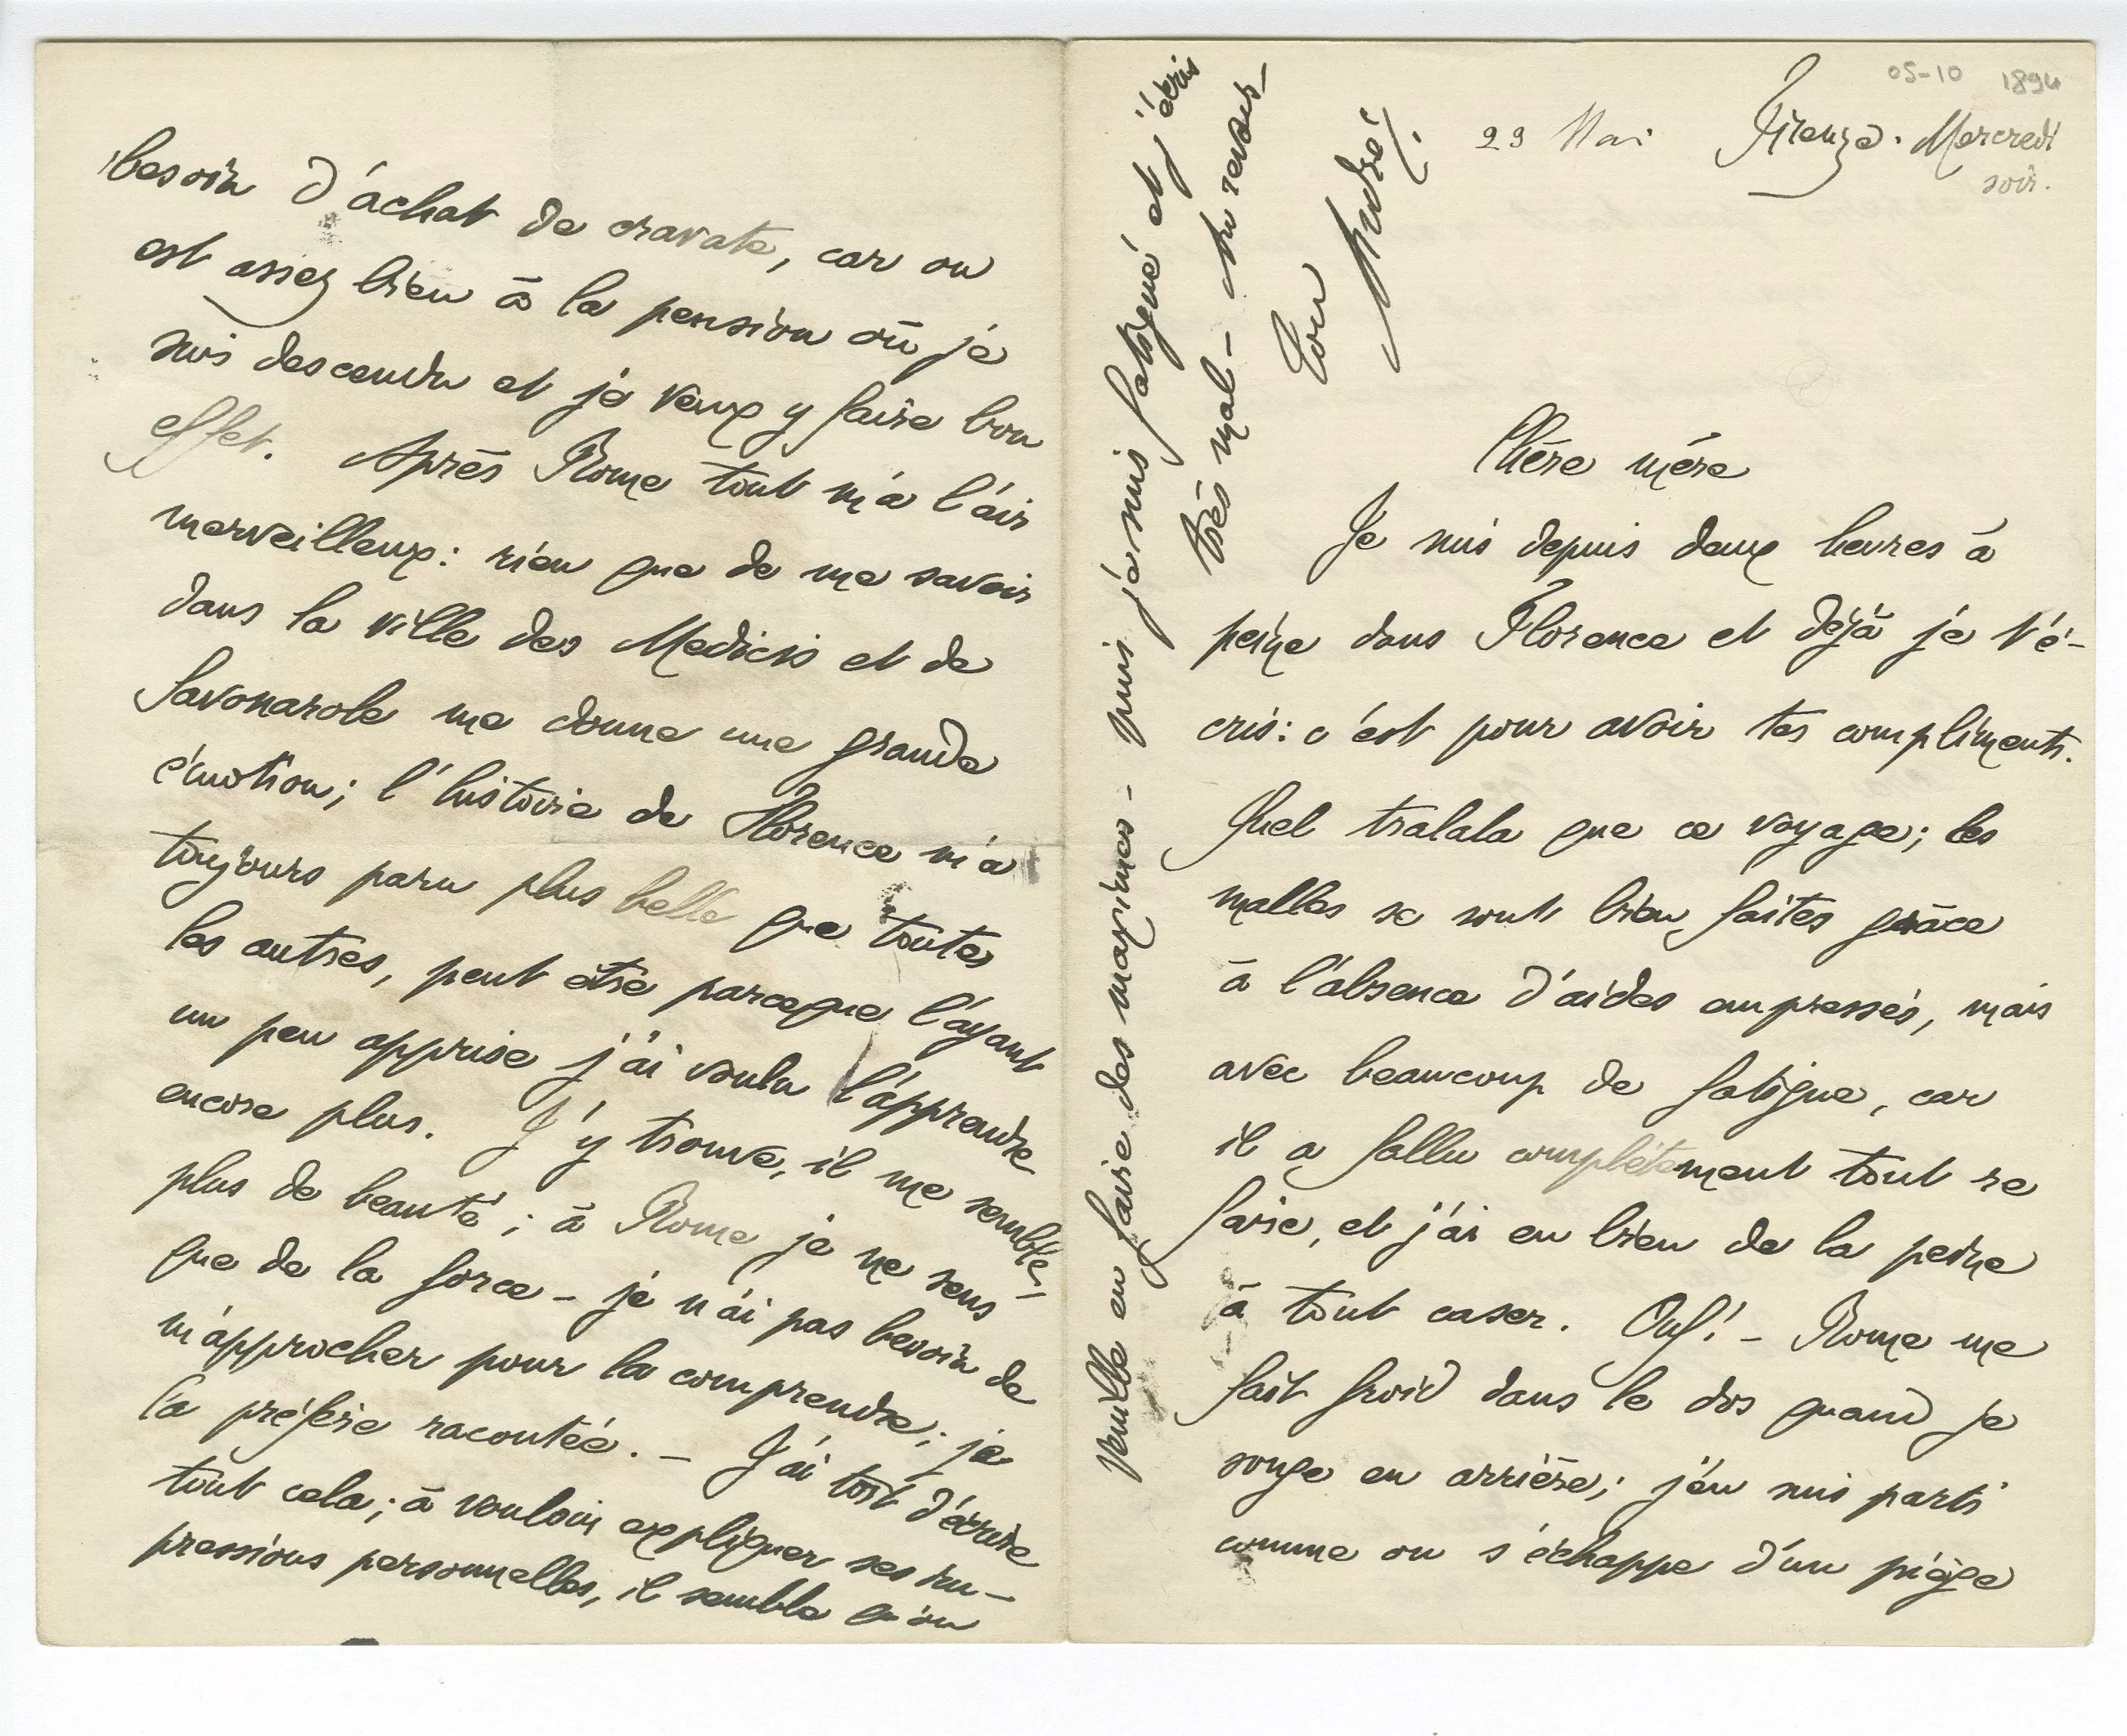 05-10 1894
23 Mai Firenze. Mercredi
soir.
Chère mère
Je suis depuis deux heures à
peine dans Florence et déjà je t'é-
cris: c'est pour avoir tes compliments.
Quel tralala que ce voyage; les
malles se sont bien faites grâce
à l'absence d'aides empressés, mais
avec beaucoup de fatigue, car
il a fallu complètement tout re
faire, et j'ai eu bien de la peine
à tout caser. Ouf! – Rome me
fait froid dans le dos quand je
songe en arrière; j'en suis parti
comme on s'échappe d'un piège
veuille en faire des maximes – puis je suis fatigué et j'écris
très mal – au revoir –
Ton
André.
besoin d'achat de cravate, car on
est assez bien à la pension où je
suis descendu et je veux y faire bon
effet. Après Rome tout m'a l'air
merveilleux: rien que de me savoir
dans la ville des Medicis et de
Savonarole me donne une grande
émotion; l'histoire de Florence m'a
toujours paru plus belle que toutes
les autres, peut être parceque l'ayant
un peu apprise j'ai voulu l'apprendre
encore plus. J'y trouve, il me semble,
plus de beauté; à Rome je ne sens
que de la force – je n'ai pas besoin de
m'approcher pour la comprendre; je
la préfère racontée. – J'ai tort d'écrire
tout cela; à vouloir expliquer ses im-
pressions personnelles, il semble qu'on